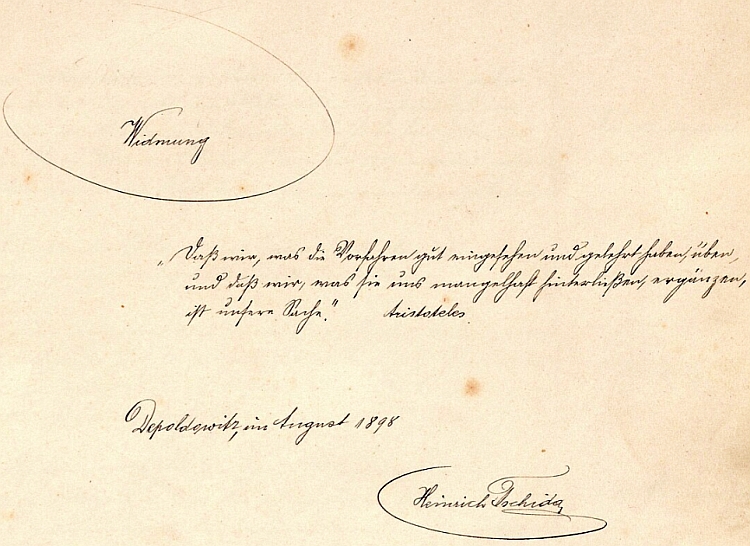 Widmung
„Daß wir, was die Vorfahren gut eingesehen und gelehrt haben, üben,
und daß wir, was sie uns mangelhaft hinterließen, ergänzen,
ist unsere Sache." Aristoteles
Depoldowitz, im August 1898
Heinrich Tschida